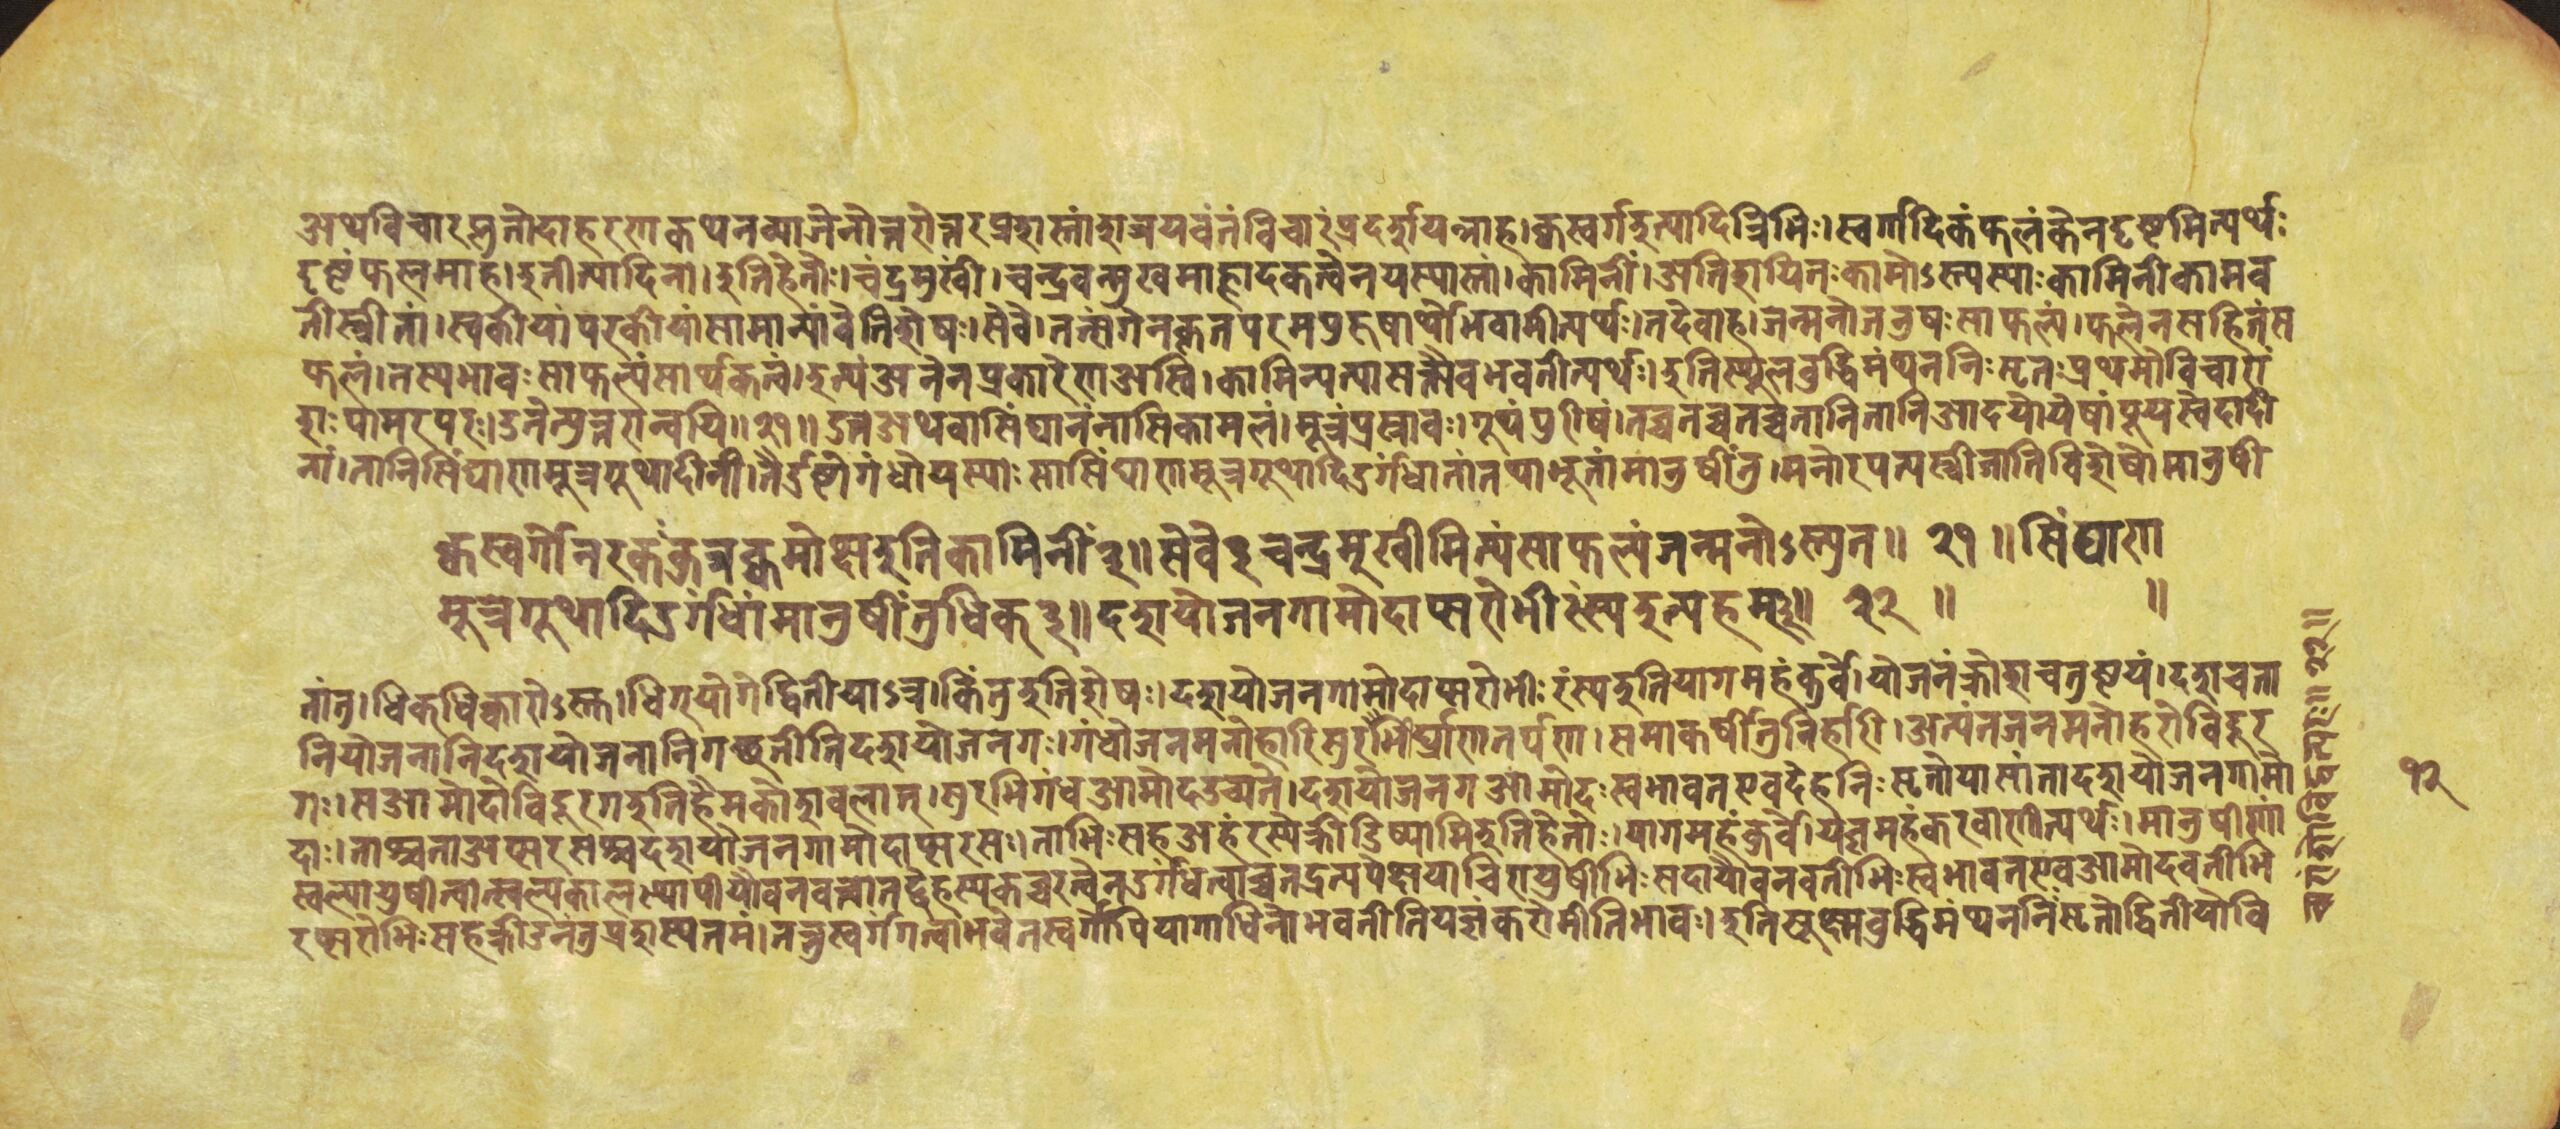 अथविचारप्लुतोदाहरणकथनव्याजेनोत्तरोत्तरप्रशस्तांशत्रयवंतंविचारंप्रदर्शयन्नाह।क्वस्वर्गइत्यादित्रिभिः।स्वर्गादिकंफलंकेनदृष्टमित्यर्थः
दृष्टंफलमाह।इतीत्यादिना।इतिहेतोः।चंद्रमुखीं।चन्द्रवन्मुखमाह्लादकत्वेनयस्यास्तां।कामिनीं।अतिशयितःकामोऽस्त्यस्याःकामिनीकामव
तीस्त्रीतां।स्वकीयांपरकीयांसामान्यांवेतिशेषः।सेवे।तत्संगेनकृतपरमपुरूषार्थोभवामीत्यर्थः।तदेवाह।जन्मनोजनुषःसाफल्यं।फलेनसहितंस
फलं।तस्यभावःसाफल्यंसार्थकत्वं।इत्थंअनेनप्रकारेणअस्ति।कामिन्यत्यासक्तौवभवतीत्यर्थः।इतिस्थूलबुद्धिमंथननिःसृतःप्रथमोविचारां
शःपामरपरः।उतेत्युत्तरान्वयि॥२१॥उतअथवासिंघानंनासिकामलं।मूत्रंप्रस्रावः।गूथंपुरीषं।तच्चतच्चतच्चतानितानिआदयोयेषांपूयस्वेदादी
नां।तानिसिंघाणमूत्रगूथादीनी।तैर्दुष्टोगंधोयस्याःसासिंघाणमूत्रगूथादिदुर्गंधातांतथाभूतांमानुषींतु।मनोरपत्यस्त्रीजातिविशेषोमानुषी
क्वस्वर्गोनरकंकुत्रक्वमोक्षइतिकामिनीं३॥सेवे३चन्द्रमुखीमित्थंसाफल्यंजन्मनोऽस्त्युत॥२१॥सिंघाण
मूत्रगूथादिदुर्गंधिांमानुषींतुधिक्३॥दशयोजनगामोदाप्सरोभीरंस्यइत्यहम्३॥२२॥ ॥
तांतु।धिक्धिक्कारोऽस्तु।धिग्योगेद्वितीयाऽत्र।किंतुइतिशेषः।दशयोजनगामोदाप्सरोभीःरंस्यइतियागमहंकुर्वे।योजनंक्रोशचतुष्टयं।दशचता
नियोजनानिदशयोजनानिगच्छतीतिदशयोजनगः।गंधोजनमनोहारिसुरभिर्घ्राणतर्पण।समाकर्षीतुनिर्हारी।अत्यंतजनमनोहरोविदूर
गः।सआमोदोविदूरगइतिहैमकोशबलात्।सुरभिगंधआमोदउच्यते।दशयोजनगआमोदःस्वभावतएवदेहनिःसृतोयासांतादशयोजनगामो
दाः।ताश्चताअप्सरसश्चदशयोजनगामोदाप्सरसः।ताभिःसहअहंरंस्येक्रीडिष्यामिइतिहेतोः।यागमहंकुर्वे।यज्ञमहंकरवाणीत्यर्थः।मानुषीणां
स्वल्पायुषीत्वात्स्वल्पकालस्थायीयौवनवत्त्वात्तद्देहस्यकच्चरत्वेनदुर्गंधित्वाच्चतद्रत्यपेक्षयाचिरायुषीभिःसदायौवनवतीभिःस्वभावतएवआमोदवतीभि
रप्सरोभिःसहक्रीडनंतुप्रशस्यतमं।तत्तुस्वर्गंगत्वाभवेत्स्वर्गोपियागाधिनोभवतीतियज्ञंकरोमीतिभावः।इतिसूक्ष्मबुद्धिमंथननिःसृतोद्वितीयोवि
१२